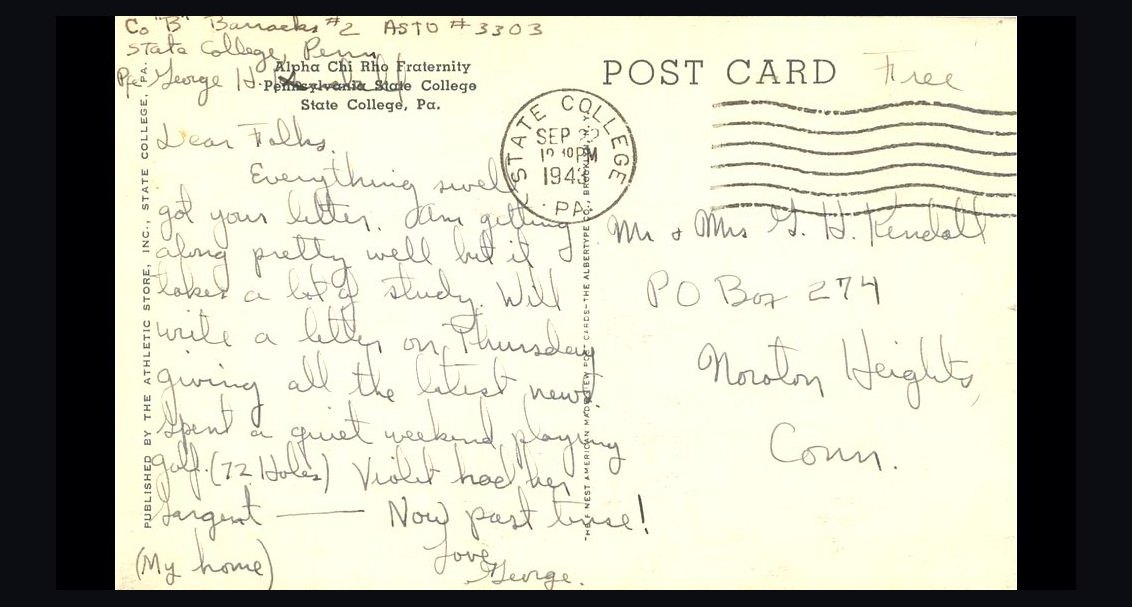 Co "B" Barracks #2 ASTU #3303
State College, Penn
Pfc George H. Kendall
Alpha Chi Rho Fraternity
Pennsylvania State College
State College, Pa.
POST CARD
Free
STATE COLLEGE
SEP
PM
1943
PA.
Dear Folks.
Everything swell
got your letter. Am getting
along pretty well but it
takes a lot of study. Will
write a letter on Thursday
giving all the latest news.
Spent a quiet weekend playing
golf. (72 Holes) Violet had her
Sargent — Now past tense!
Love
George.
(My home)
Mr & Mrs G. H. Kendall
PO Box 274
Noroton Heights,
Conn.
PUBLISHED BY THE ATHLETIC STORE, INC., STATE COLLEGE, PA.
FINEST AMERICAN MADE VIEW POST CARDS—THE ALBERTYPE CO., BROOKLYN, N.Y.